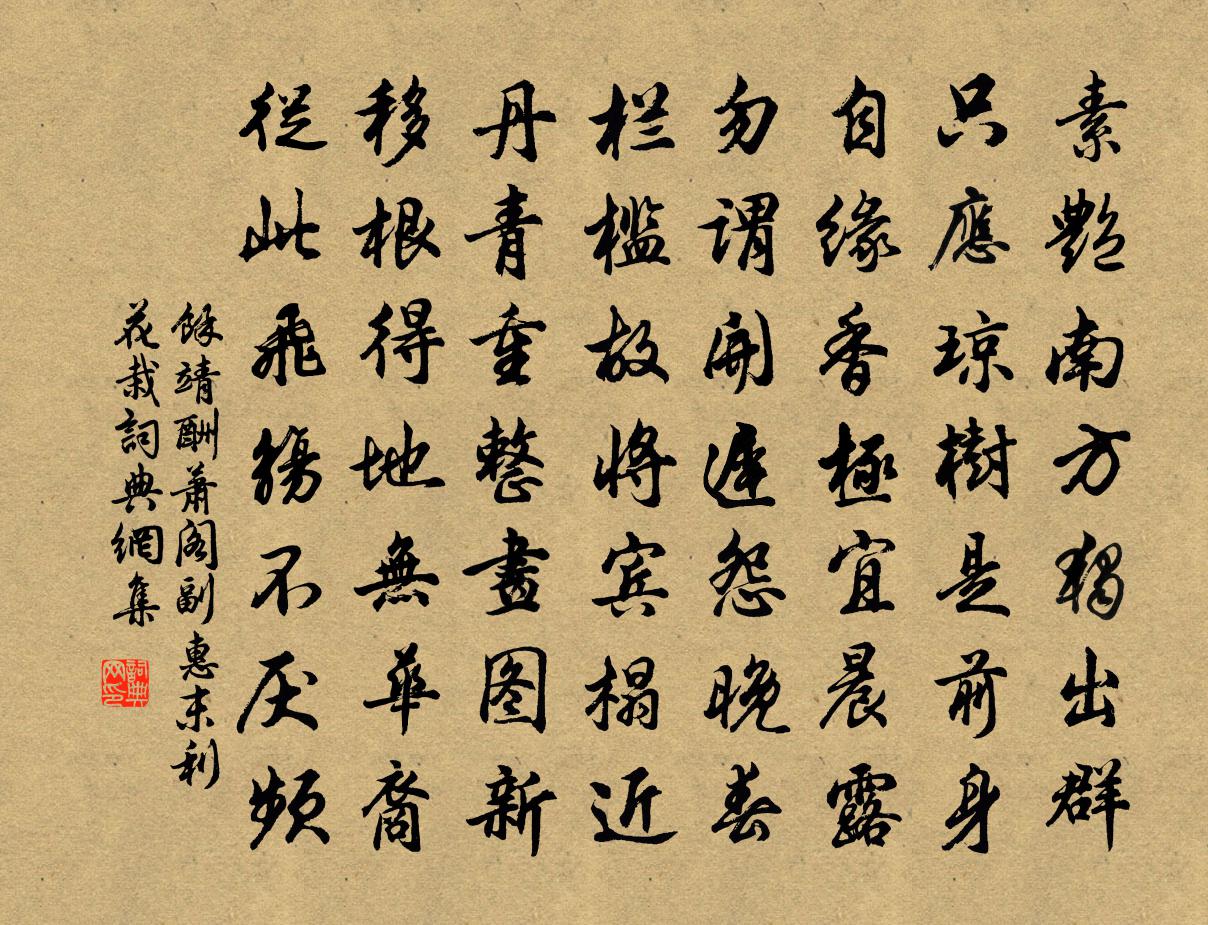 素艷南方獨出群
只應琼樹是前身
自緣香極宜晨露
勿謂開遲怨晚春
栏檻故將宾榻近
丹青重整畫图新
移根得地無華裔
從此飛觴不厌頻
餘靖酬蕭阁副惠末利
花栽詞典網集
詞典
网印